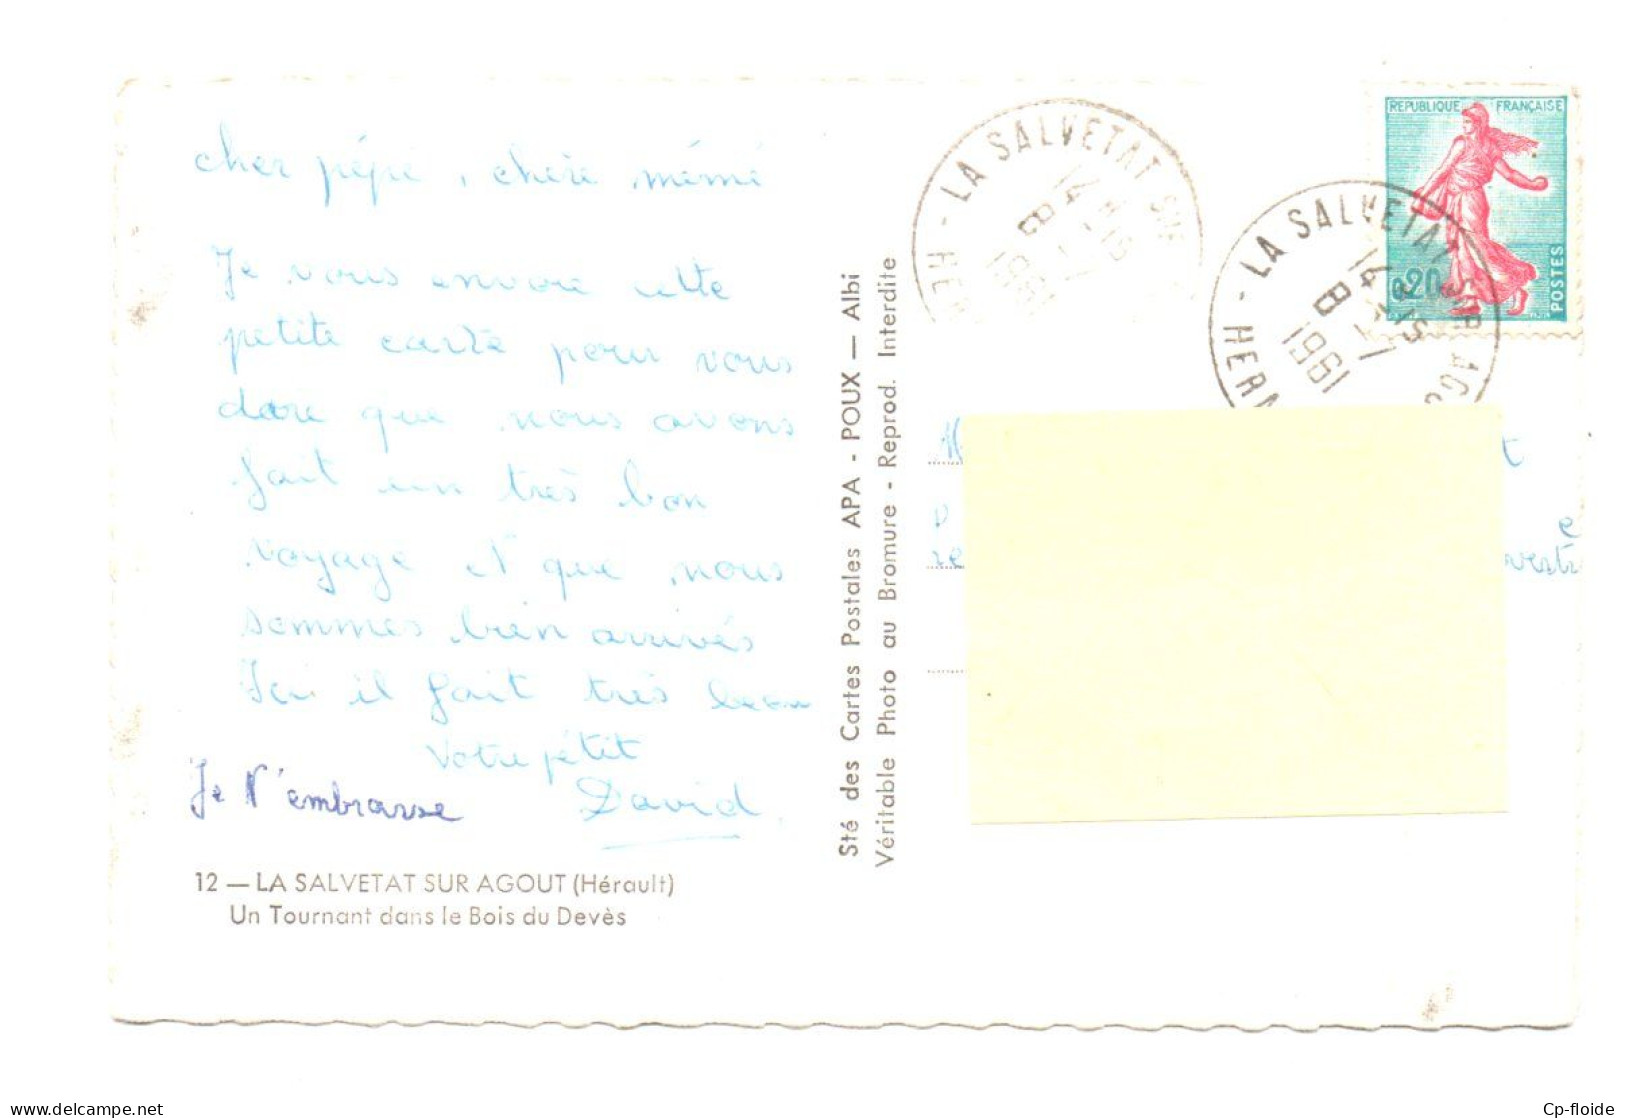 cher pépé, chère mémé
Je vous envoie cette
petite carte pour vous
dire que nous avons
fait un très bon
voyage et que nous
sommes bien arrivés
Ici il fait très beau
Votre petit
David
Je t'embrasse
12 — LA SALVETAT SUR AGOUT (Hérault)
Un Tournant dans le Bois du Devès
Sté des Cartes Postales APA - POUX — Albi
Véritable Photo au Bromure - Reprod. Interdite
- LA SALVETAT SUR
14 H15
8
REPUBLIQUE FRANÇAISE
0,20
POSTES
- LA SALVETAT SUR AGO
14 H15
8
1961
Cp-floide